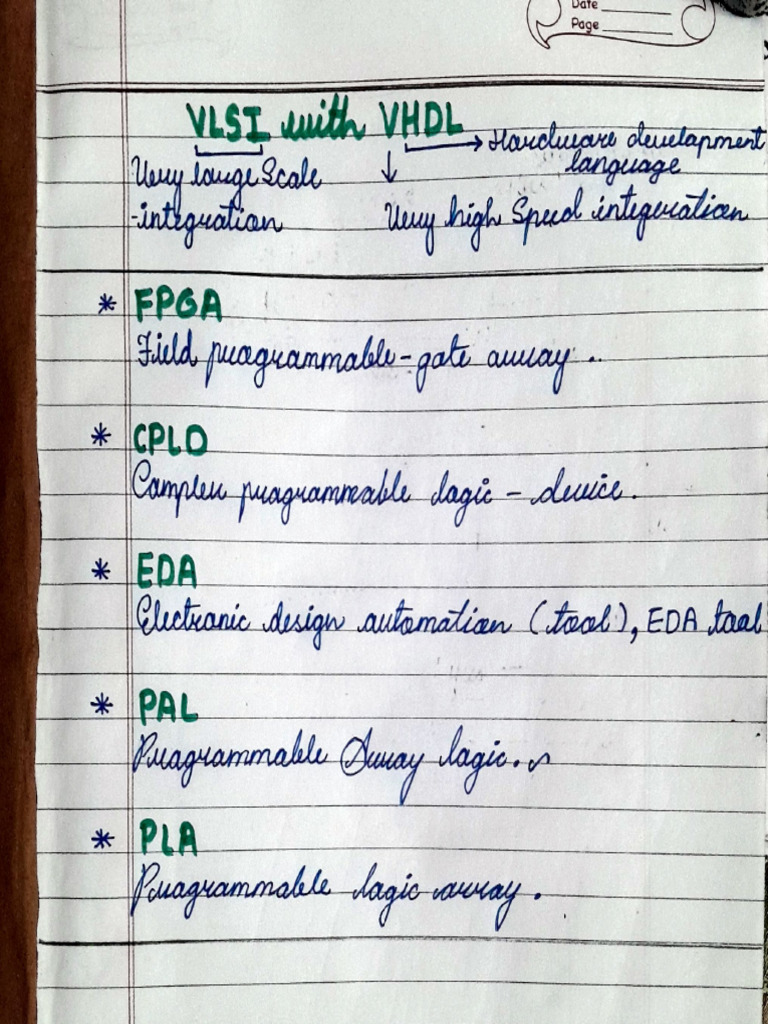 Date
Page
VLSI with VHDL
Hardware development
language
Very large Scale
-integration
Very high Speed integeration
* FPGA
Field programmable-gate array ..
* CPLD
Complex programmable logic - device.
* EDA
Electronic design automation (tool), EDA tool
* PAL
Programmable Array logic.
* PLA
Programmable logic array.